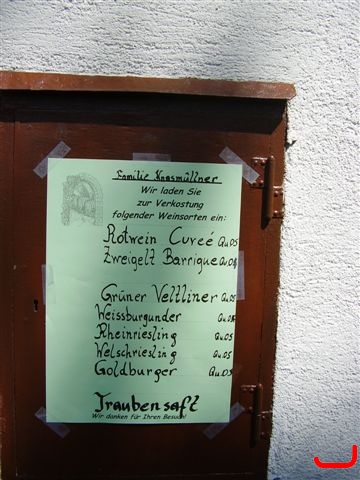 Familie Knasmüllner
Wir laden Sie
zur Verkostung
folgender Weinsorten ein:
Rotwein Cuveé Qu.05
Zweigelt Barrique Qu.05
Grüner Veltliner Qu.05
Weissburgunder Qu.05
Rheinriesling Qu.05
Welschriesling Qu.05
Goldburger Qu.05
Traubensaft
Wir danken für Ihren Besuch!